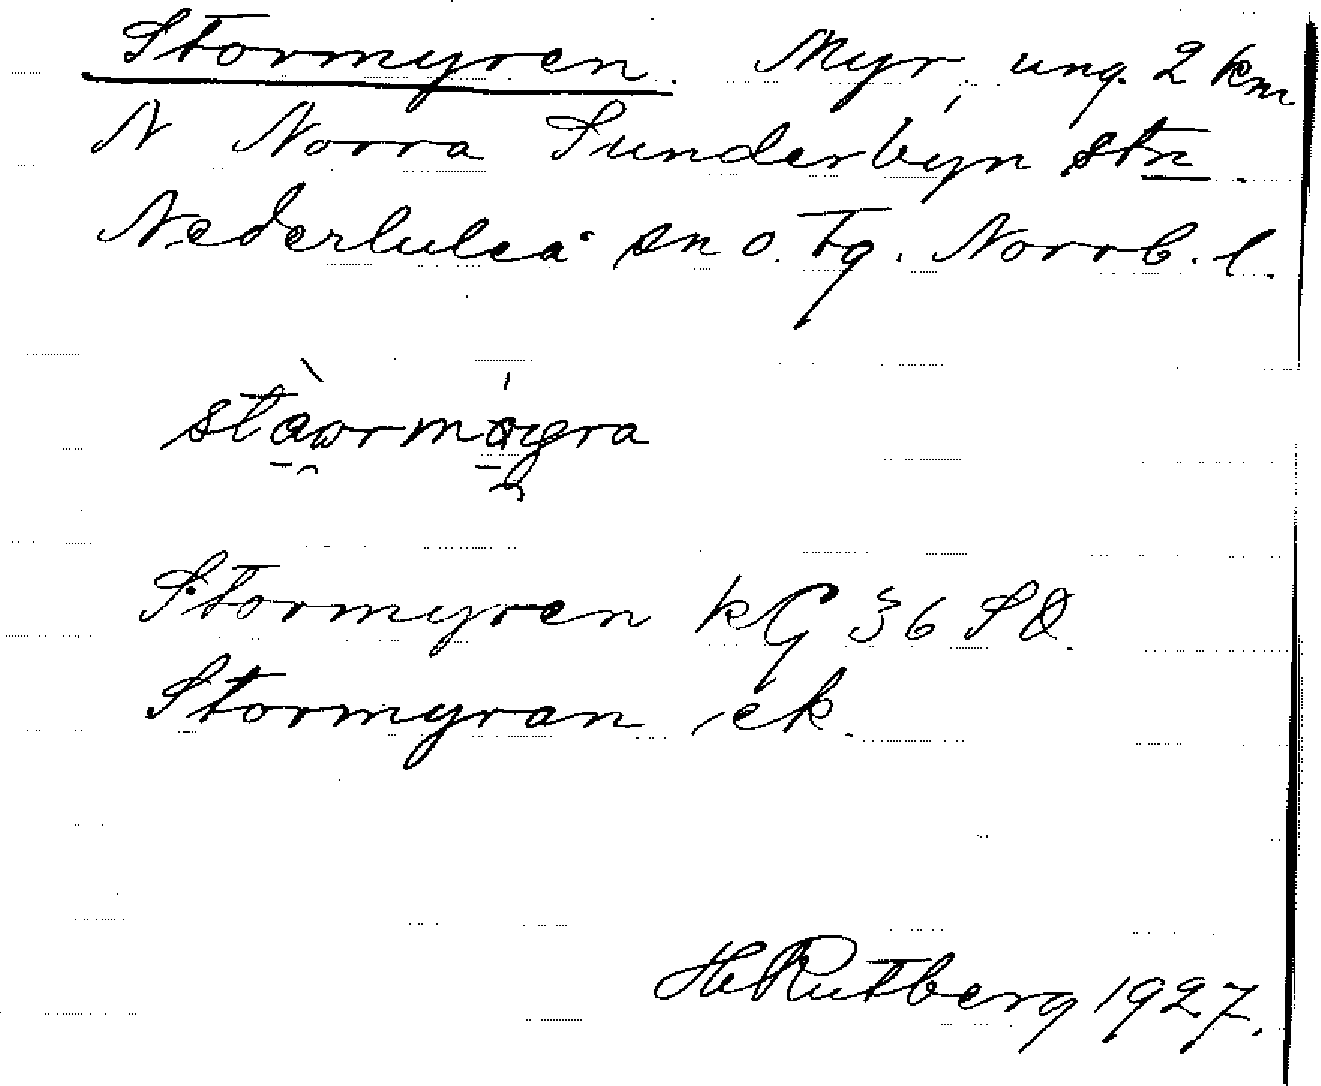 Stormyren. Myr, ung. 2 km
N Norra Sunderbyn stn.
Nederluleå sn o. tg. Norrb. l.
Stormyren kG 36 SO.
Stormyran ek.
H Rutberg 1927.